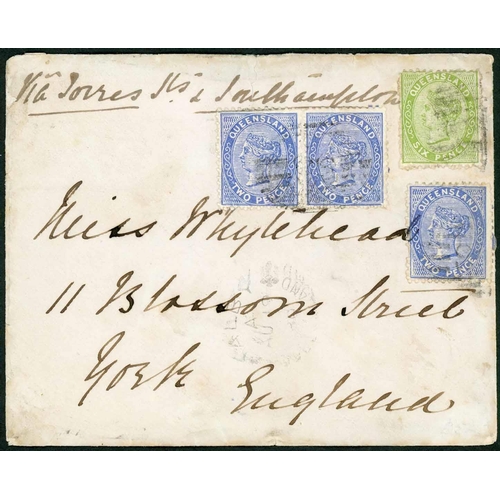 Via Torres Sts & Southampton
QUEENSLAND
SIX PENCE
QUEENSLAND
TWO PENCE
QUEENSLAND
TWO PENCE
QUEENSLAND
TWO PENCE
Miss Whytehead
11 Blossom Street
York
England